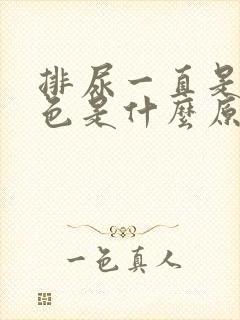 排尿一直是
色是什麼原
一色真人